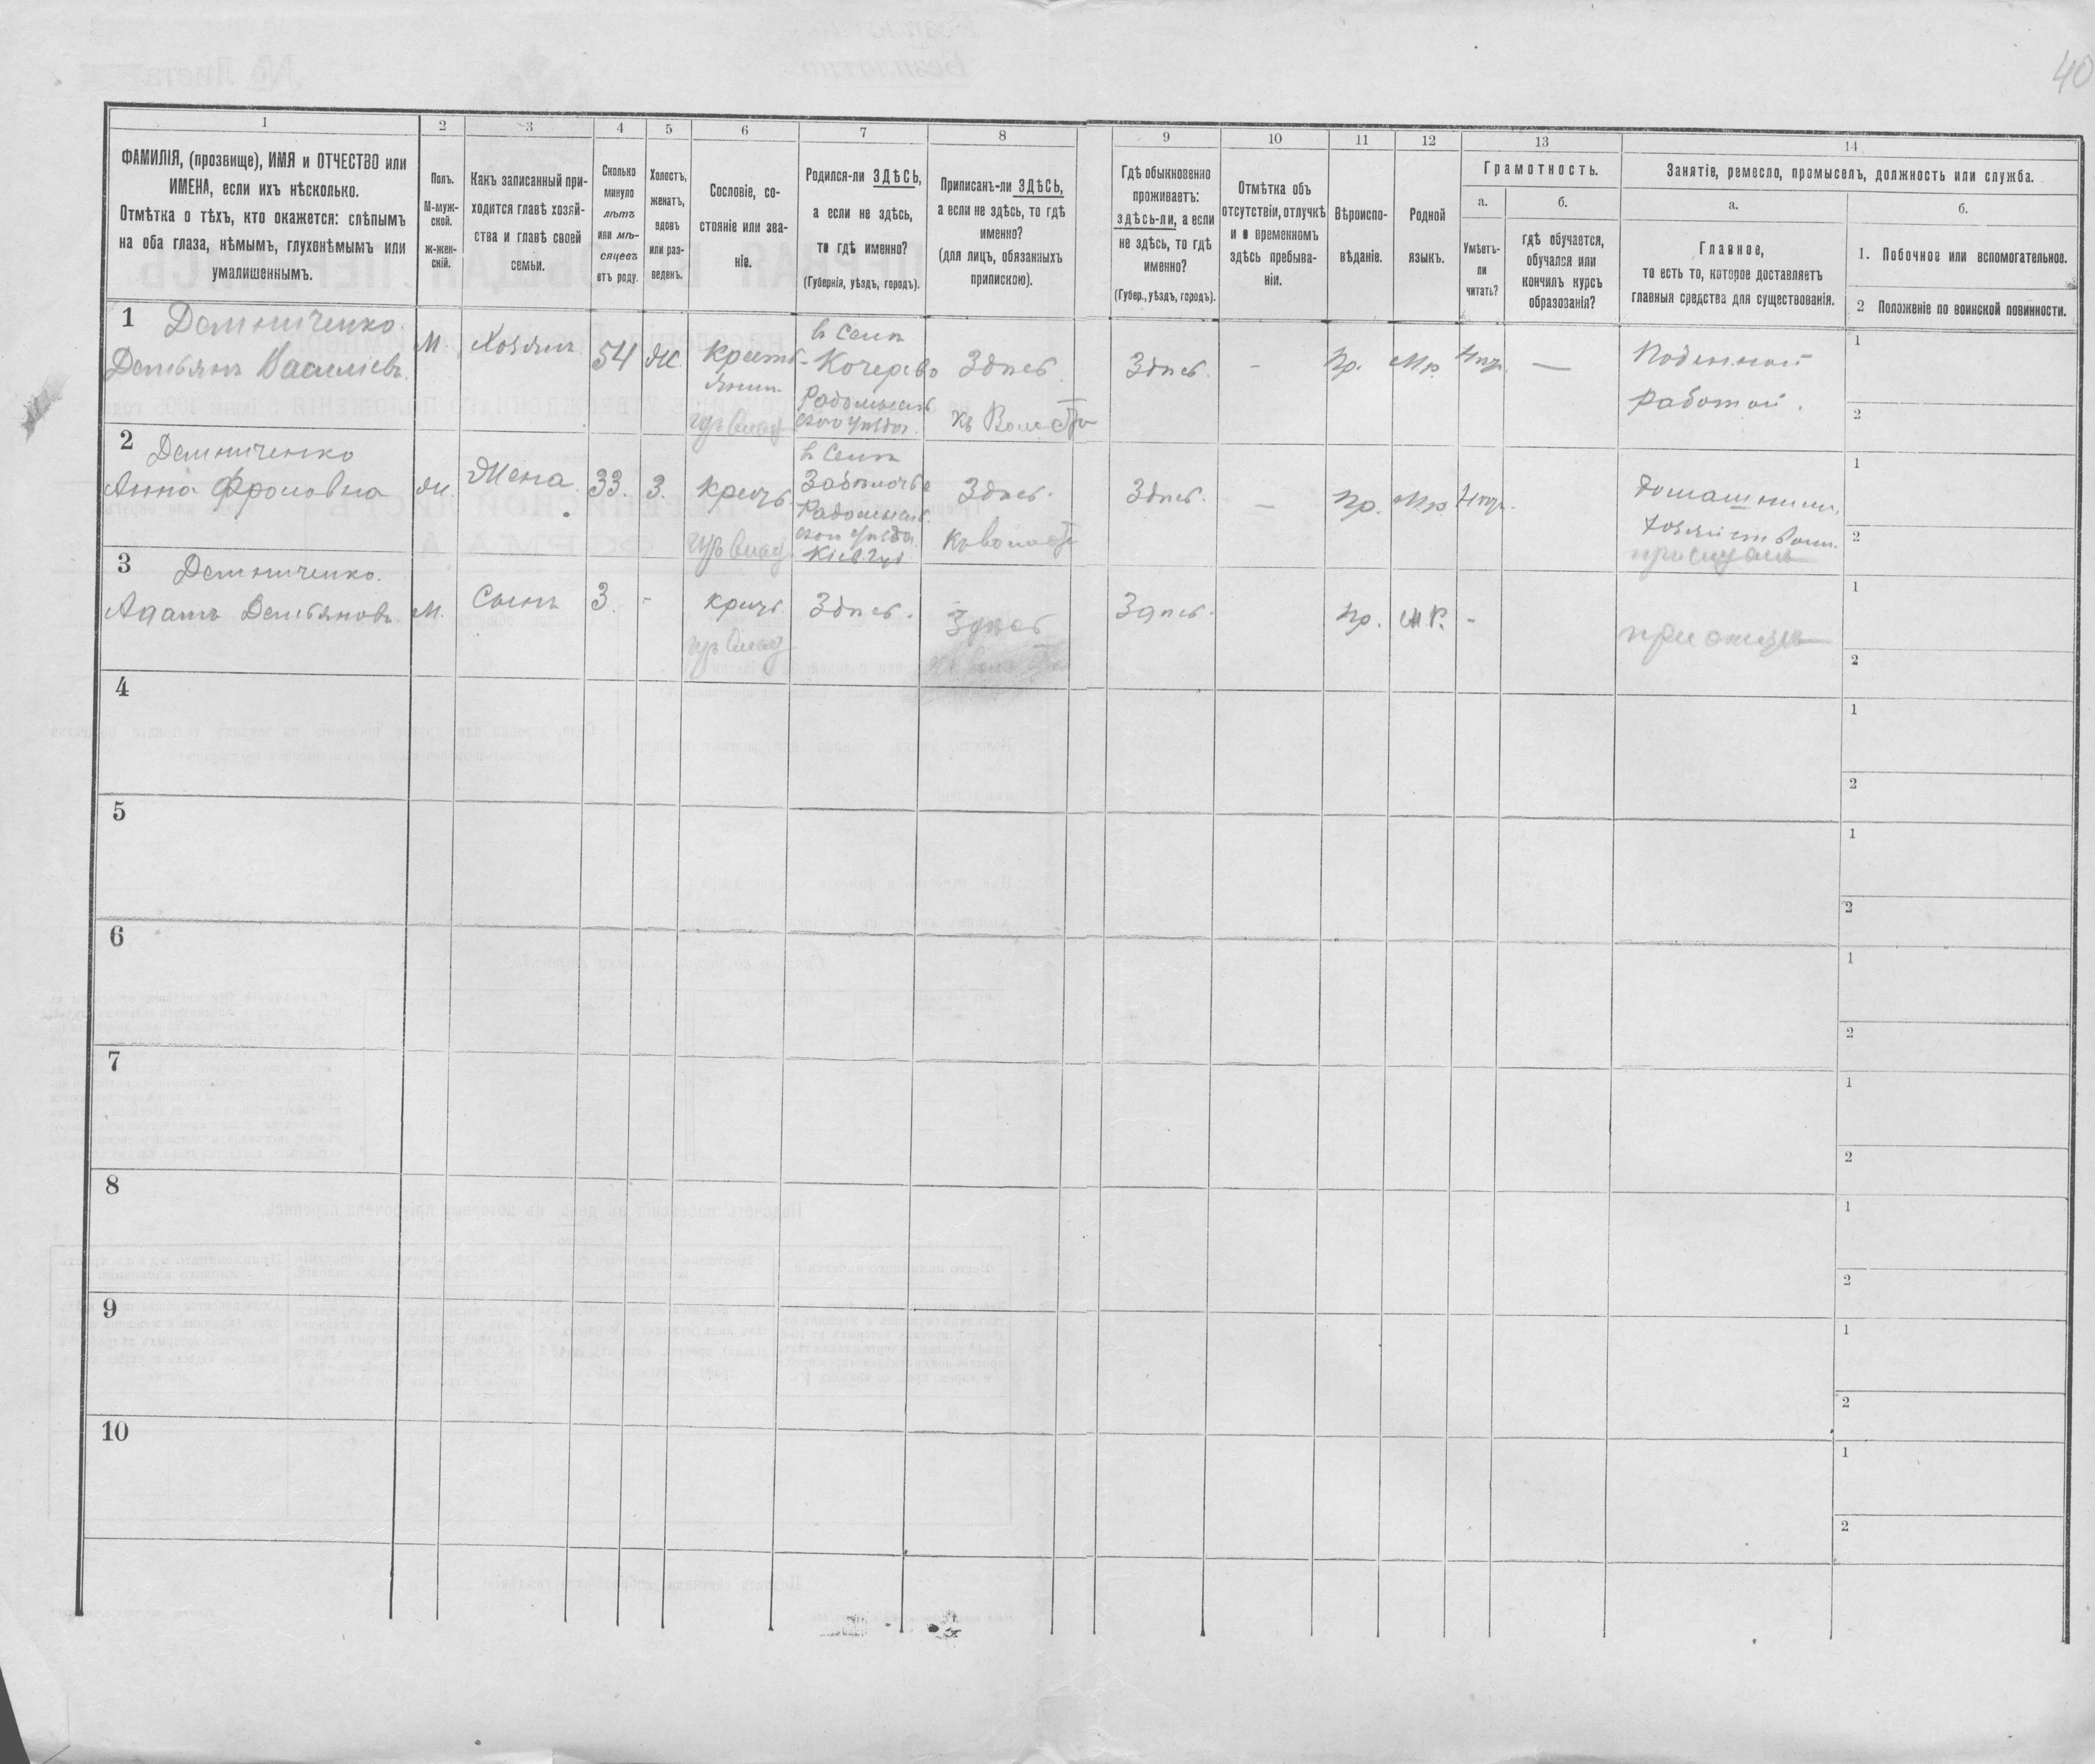 40
1
2
3
4
5
6
7
8
9
10
11
12
13
14
ФАМИЛІЯ, (прозвище), ИМЯ и ОТЧЕСТВО или
ИМЕНА, если ихъ нѣсколько.
Отмѣтка о тѣхъ, кто окажется: слѣпымъ
на оба глаза, нѣмымъ, глухонѣмымъ или
умалишеннымъ.
Полъ.
М-муж-
ской.
ж-жен-
скій.
Какъ записанный при-
ходится главѣ хозяй-
ства и главѣ своей
семьи.
Сколько
минуло
лѣтъ
или мѣ-
сяцевъ
отъ роду.
Холостъ,
женатъ,
вдовъ
или раз-
веденъ.
Сословіе, со-
стояніе или зва-
ніе.
Родился-ли ЗДѢСЬ,
а если не здѣсь,
то гдѣ именно?
(Губернія, уѣздъ, городъ).
Приписанъ-ли ЗДѢСЬ,
а если не здѣсь, то гдѣ
именно?
(для лицъ, обязанныхъ
припискою).
Гдѣ обыкновенно
проживаетъ:
здѣсь-ли, а если
не здѣсь, то гдѣ
именно?
(Губер., уѣздъ, городъ).
Отмѣтка объ
отсутствіи, отлучкѣ
и о временномъ
здѣсь пребыва-
ніи.
Вѣроиспо-
вѣданіе.
Родной
языкъ.
Грамотность.
а.
б.
Умѣетъ-
ли
читать?
гдѣ обучается,
обучался или
кончилъ курсъ
образованія?
Занятіе, ремесло, промыселъ, должность или служба.
а.
б.
Главное,
то есть то, которое доставляетъ
главныя средства для существованія.
1. Побочное или вспомогательное.
2 Положеніе по воинской повинности.
1 Демниченко
Демьянъ Василіевъ
М
Хозяинъ
54
Ж.
Крест
янин.
в Селѣ
Кочерево
Радомысль
ского уѣзда.
Здѣсь
Здѣсь.
-
Пр.
Мр.
—
Поденной
работой.
1
2
2 Демниченко
Анна Фроловна
Ж.
Жена
33.
З.
крест.
в Селѣ
Радомысль
ского уѣзда
Кіев. губ
Здѣсь.
Здѣсь.
—
Пр.
М.р.
Домашним.
хозяйством.
1
2
3 Демниченко.
Адамъ Демьяновъ
М.
Сынъ
3.
-
крест.
Здѣсь.
Здѣсь
Здѣсь.
Пр.
М.Р.
-
1
2
4
1
2
5
1
2
6
1
2
7
1
2
8
1
2
9
1
2
10
1
2